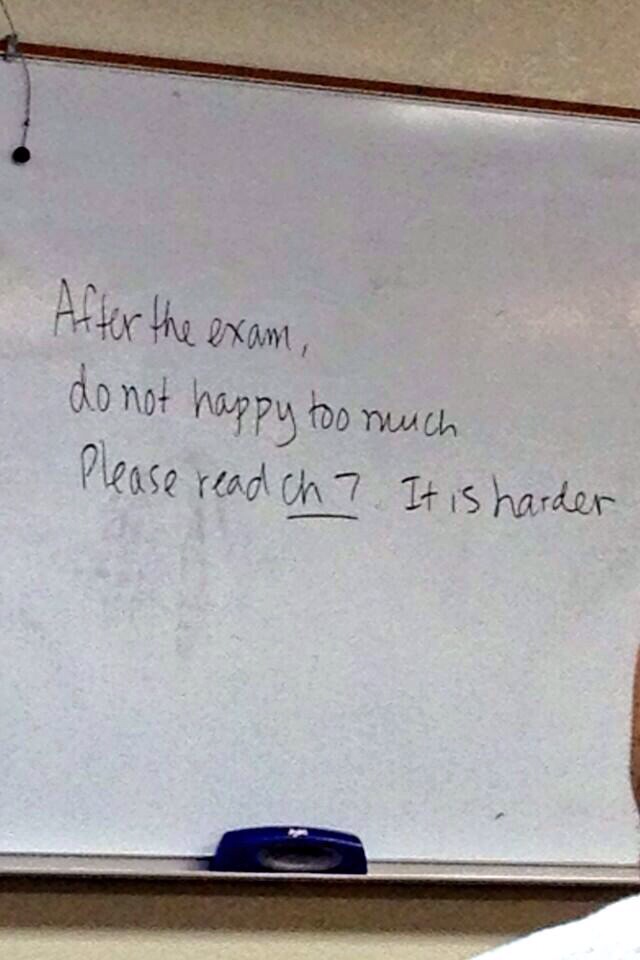 After the exam,
do not happy too much
Please read ch 7. It is harder